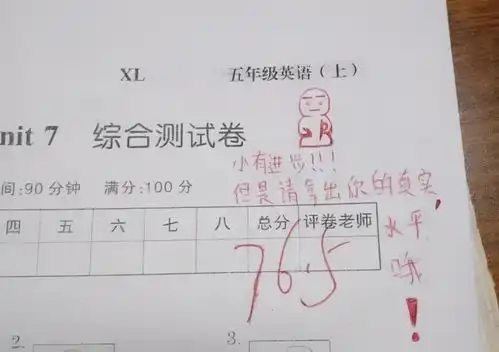 XL 五年级英语（上）
nit 7 综合测试卷
小有进步!!!
间:90分钟 满分:100分
但是请拿出你的真实
水平
哦!
四 五 六 七 八 总分 评卷老师
76.5
2.
3.